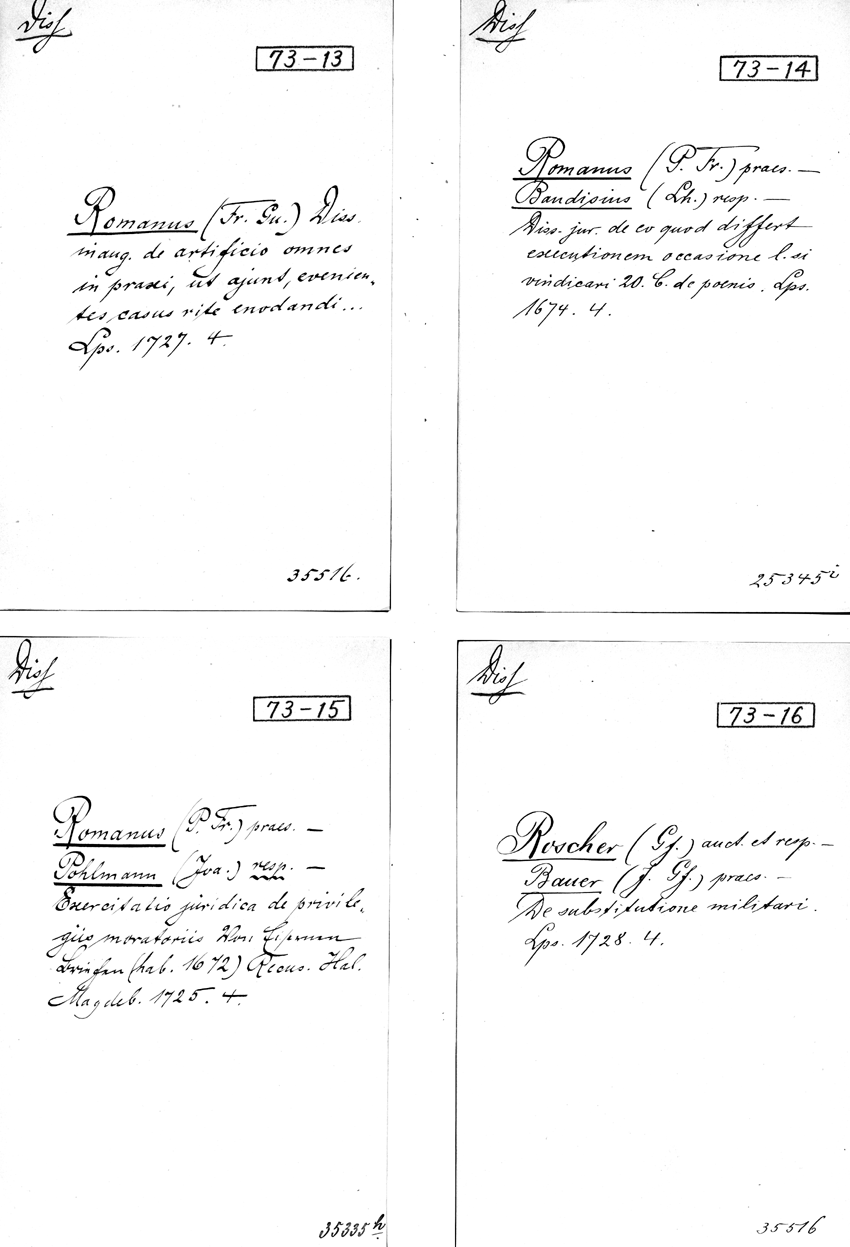 Diss
73-13
Romanus (Fr. Gu.) Diss.
inaug. de artificio omnes
in praxi, ut ajunt, evenien-
tes casus rite enodandi...
Lps. 1727. 4.
35516.
Diss
73-14
Romanus (P. Fr.) praes. —
Baudisius (Lh.) resp. —
Diss. jur. de eo quod differt
executionem occasione l. si
vindicari 20. C. de poenis. Lps.
1674. 4.
25345i
Diss
73-15
Romanus (P. Fr.) praes. —
Pohlmann (Joa.) resp. —
Exercitatio juridica de privile-
giis moratoriis Von Eisernen
Briefen (hab. 1672) Recus. Hal.
Magdeb. 1725. 4.
35335h
Diss
73-16
Roscher (Gf.) auct. et resp. —
Bauer (J. Gf.) praes. —
De substitutione militari.
Lps. 1728. 4.
35516